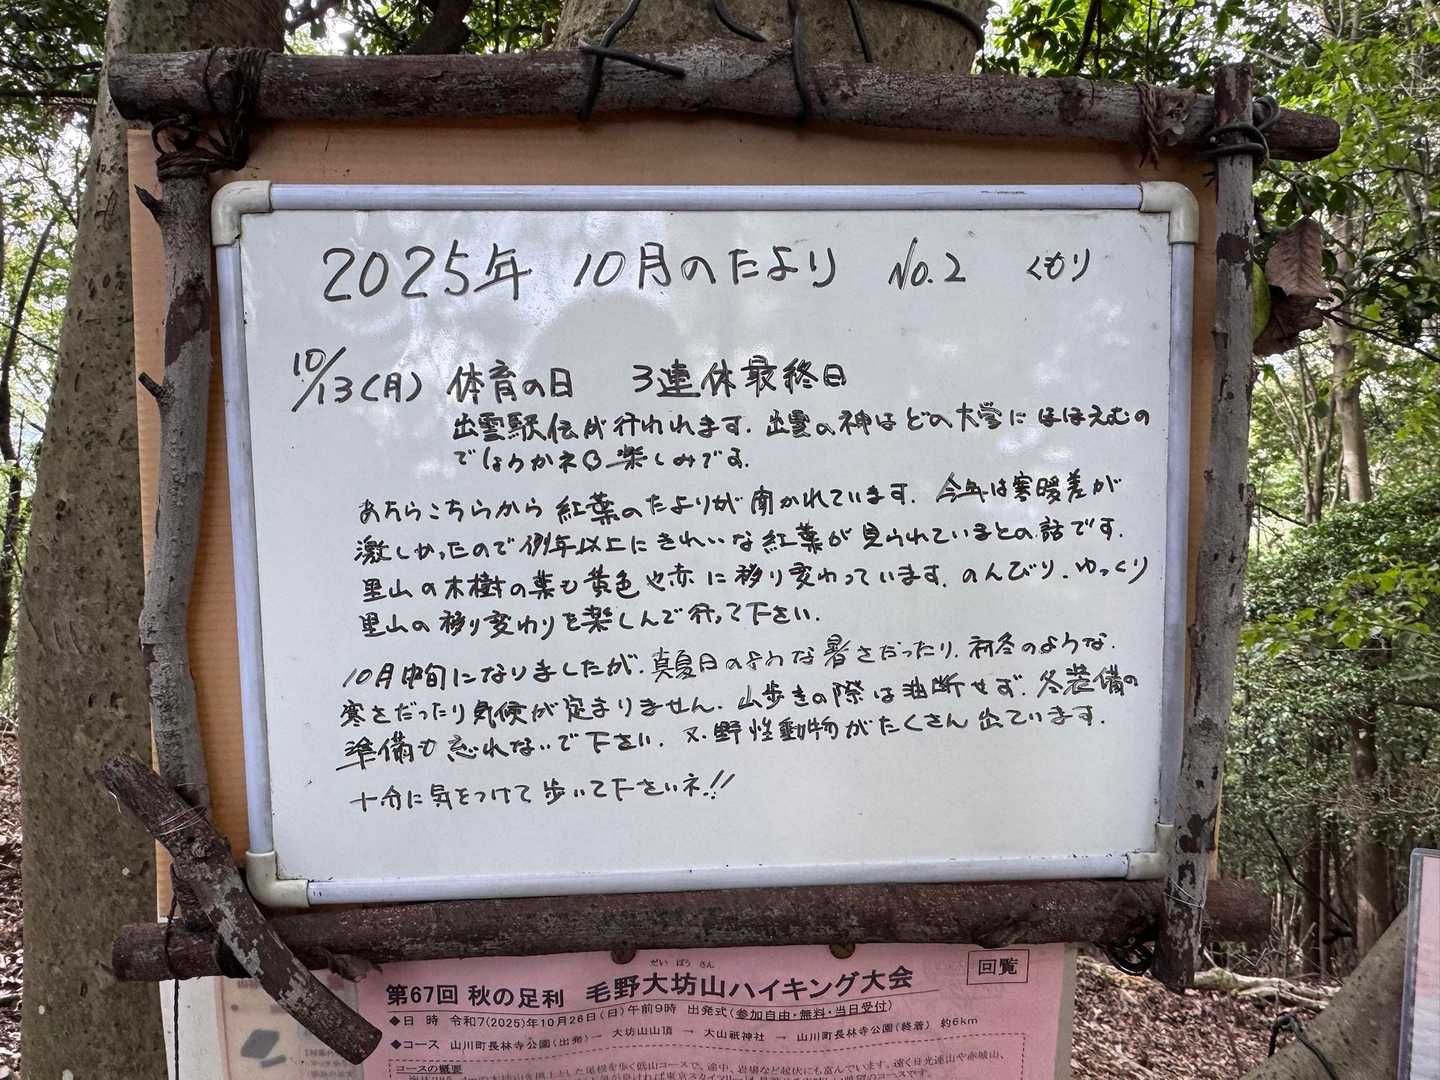 2025年 10月のたより No.2 くもり
10/13(月) 体育の日 3連休最終日
出雲駅伝が行われます. 出雲の神はどの大学にほほえむの
でしょうかネ 楽しみです.
あちらこちらから紅葉のたよりが聞かれています. 今年は寒暖差が
激しかったので例年以上にきれいな紅葉が見られていまとの話です.
里山の木樹の葉も黄色や赤に移り変わっています. のんびり. ゆっくり
里山の移り変わりを楽しんで行って下さい.
10月中旬になりましたが. 真夏日のような暑さだったり. 初冬のような.
寒さだったり気候が定まりません. 山歩きの際は油断せず. 冬装備の
準備も忘れないで下さい. 又. 野性動物がたくさん出ています.
十分に気をつけて歩いて下さいネ!!
だい ぼう さん
第67回 秋の足利 毛野大坊山ハイキング大会 回覧
◆日 時 令和7(2025)年10月26日(日)午前9時 出発式(参加自由・無料・当日受付)
◆コース 山川町長林寺公園(出発) → 大坊山山頂 → 大山祇神社 → 山川町長林寺公園(終着) 約6km
コースの概要